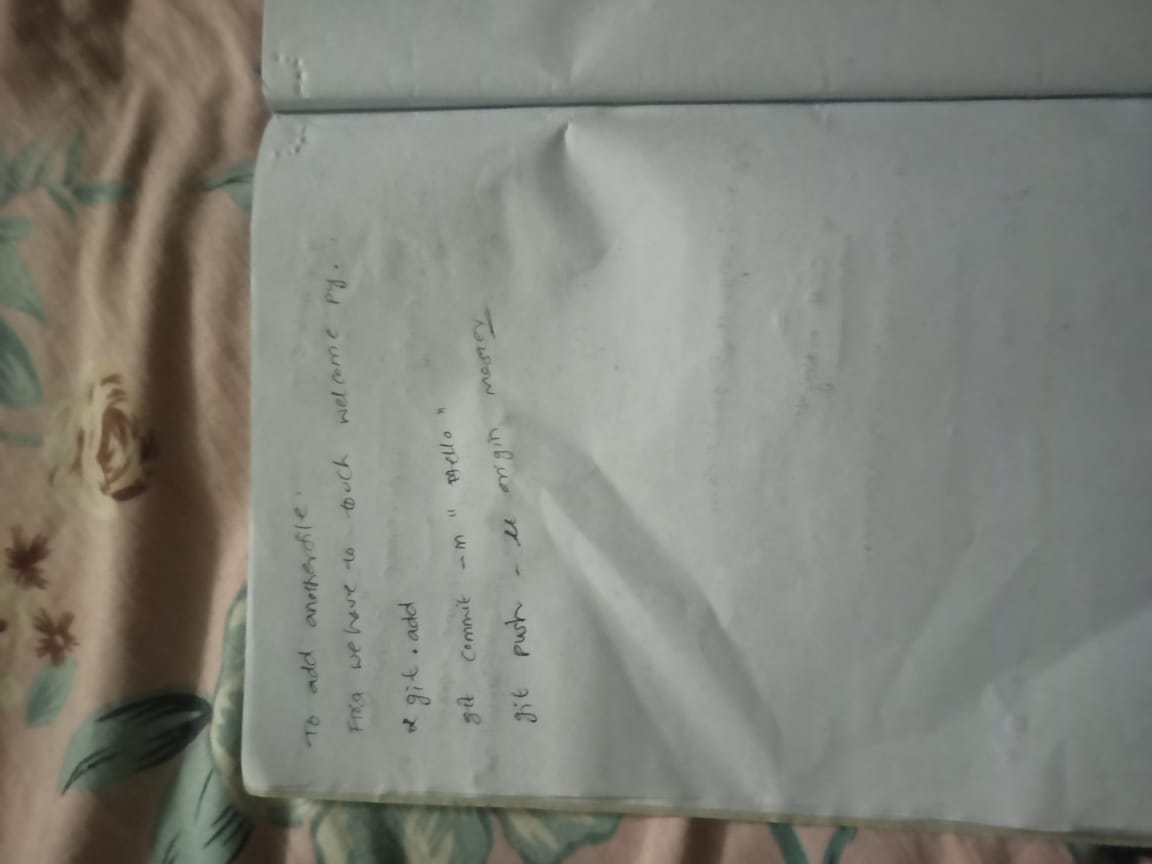 To add another file.
we have to touch welcome py.
git . add
git commit -m " Hello "
git push - u origin master